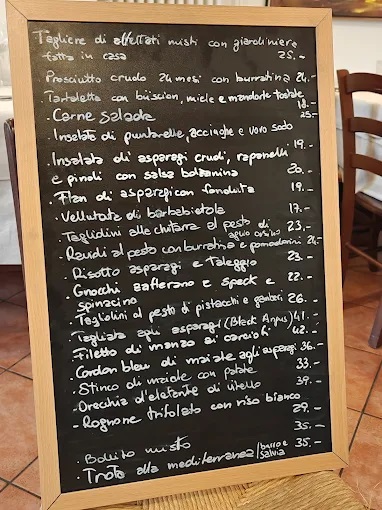 Tagliere di affettati misti con giardiniere
fatta in casa 25.-
Prosciutto crudo 24 mesi con burratina 24.-
Tartaletta con büscion, miele e mandorle tostate 18.-
. Carne Salada 25.-
Insalata di puntarelle, acciughe e uovo sodo 19.-
. Insalata di asparagi crudi, rapanelli
e pinoli con salsa bolzanina 20.-
. Flan di asparagi con fonduta 19.-
. Vellutata di barbabietola 17.-
. Taglidini alle chitarra al pesto di aglio orsino 23.-
. Ravioli al pesto con burratina e pomodorini 24.-
. Risotto asparagi e Taleggio 23.-
. Gnocchi zafferano e speck e
spinacino 22.-
. Tagliolini al pesto di pistacchi e gamberi 26.-
. Tagliata agli asparagi (Black Angus) 41.-
. Filetto di manzo ai carciofi 42.-
. Cordon bleu di maiale agli asparagi 36.-
. Stinco di maiale con patate 33.-
. Orecchia d'elefante di vitello 39.-
. Rognone trifolato con riso bianco 29.-
. Bollito misto 35.-
. Trota alla mediterranea/burro e salvia 35.-